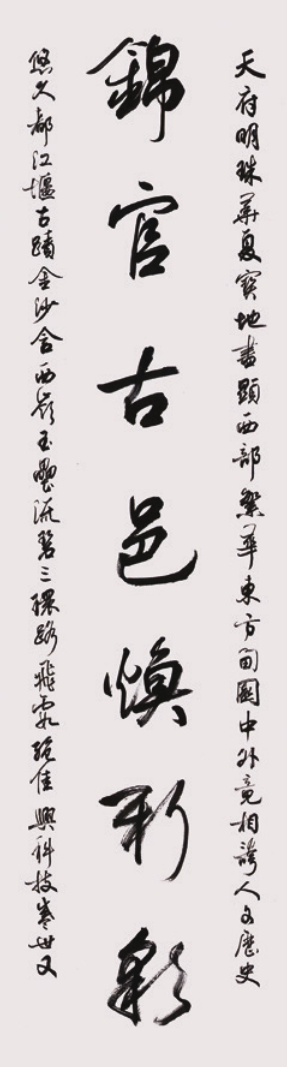 錦官古邑煥新彩
天府明珠華夏寶地盡顯西部繁華東方中外竟相誇人文歷史
悠久都江堰古蹟金沙含西嶺玉壘流碧三環路飛霞絕佳興科技世又